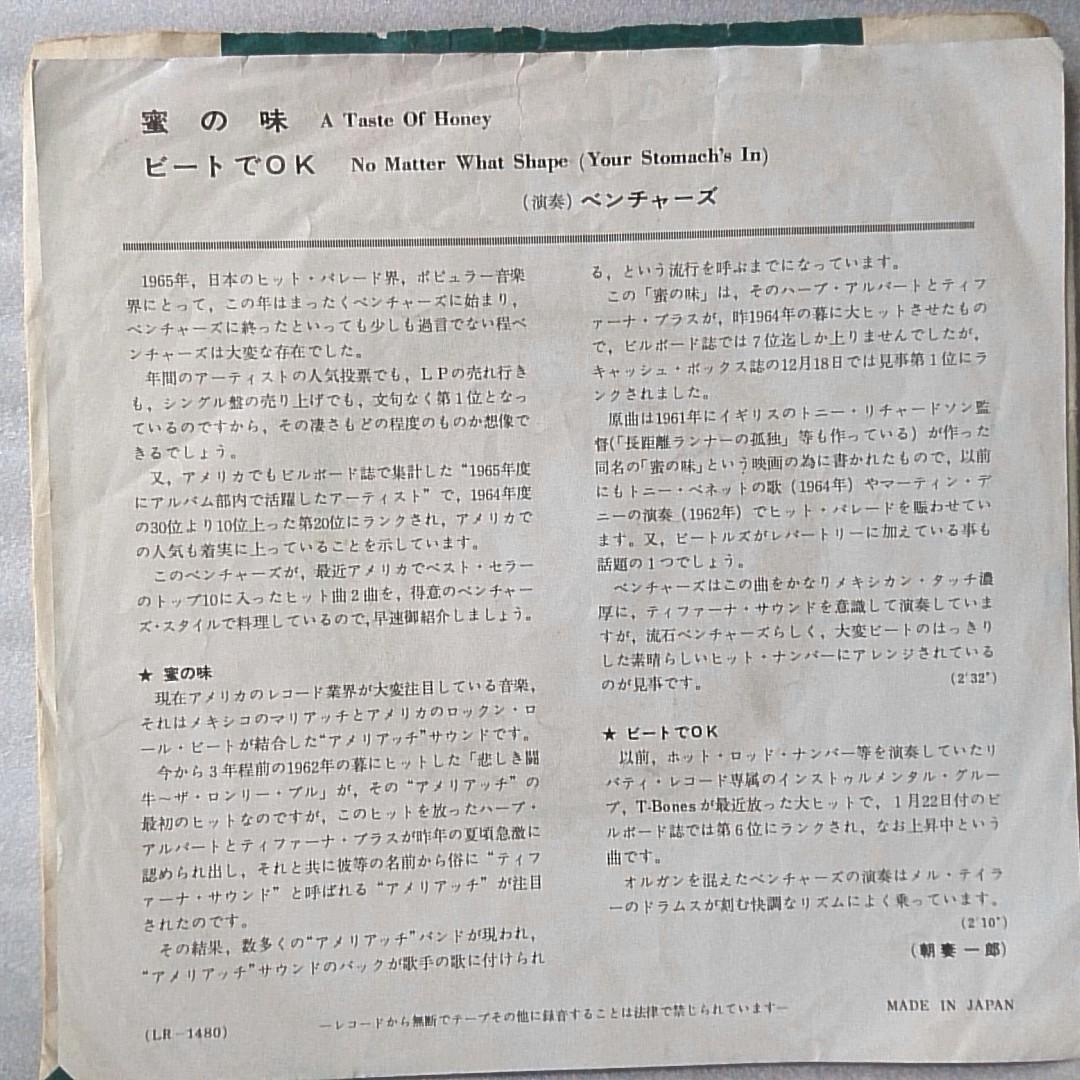 蜜の味 A Taste Of Honey
ビートでOK No Matter What Shape (Your Stomach's In)
(演奏) ベンチャーズ
1965年，日本のヒット・パレード界，ポピュラー音楽
界にとって，この年はまったくベンチャーズに始まり，
ベンチャーズに終ったといっても少しも過言でない程ベ
ンチャーズは大変な存在でした。
年間のアーティストの人気投票でも，LPの売れ行き
も，シングル盤の売り上げでも，文句なく第1位となっ
ているのですから，その凄さもどの程度のものか想像で
きるでしょう。
又，アメリカでもビルボード誌で集計した“1965年度
にアルバム部内で活躍したアーティスト”で，1964年度
の30位より10位上った第20位にランクされ，アメリカで
の人気も着実に上っていることを示しています。
このベンチャーズが，最近アメリカでベスト・セラー
のトップ10に入ったヒット曲2曲を，得意のベンチャー
ズ・スタイルで料理しているので，早速御紹介しましょう。
★ 蜜の味
現在アメリカのレコード業界が大変注目している音楽，
それはメキシコのマリアッチとアメリカのロックン・ロ
ール・ビートが結合した“アメリアッチ”サウンドです。
今から3年程前の1962年の暮にヒットした「悲しき闘
牛〜ザ・ロンリー・ブル」が，その“アメリアッチ”の
最初のヒットなのですが，このヒットを放ったハーブ・
アルバートとティファーナ・ブラスが昨年の夏頃急激に
認められ出し，それと共に彼等の名前から俗に“ティフ
ァーナ・サウンド”と呼ばれる“アメリアッチ”が注目
されたのです。
その結果，数多くの“アメリアッチ”バンドが現われ，
“アメリアッチ”サウンドのバックが歌手の歌に付けられ
る，という流行を呼ぶまでになっています。
この「蜜の味」は，そのハーブ・アルバートとティフ
ァーナ・ブラスが，昨1964年の暮に大ヒットさせたもの
で，ビルボード誌では7位迄しか上りませんでしたが，
キャッシュ・ボックス誌の12月18日では見事第1位にラ
ンクされました。
原曲は1961年にイギリスのトニー・リチャードソン監
督(「長距離ランナーの孤独」等も作っている) が作った
同名の「蜜の味」という映画の為に書かれたもので，以前
にもトニー・ベネットの歌 (1964年) やマーティン・デ
ニーの演奏 (1962年) でヒット・パレードを賑わせてい
ます。又，ビートルズがレパートリーに加えている事も
話題の1つでしょう。
ベンチャーズはこの曲をかなりメキシカン・タッチ濃
厚に，ティファーナ・サウンドを意識して演奏していま
すが，流石ベンチャーズらしく，大変ビートのはっきり
した素晴らしいヒット・ナンバーにアレンジされている
のが見事です。 (2'32")
★ ビートでOK
以前，ホット・ロッド・ナンバー等を演奏していたリ
バティ・レコード専属のインストゥルメンタル・グルー
プ，T-Bonesが最近放った大ヒットで，1月22日付のビ
ルボード誌では第6位にランクされ，なお上昇中という
曲です。
オルガンを混えたベンチャーズの演奏はメル・テイラ
ーのドラムスが刻む快調なリズムによく乗っています。
(2'10")
(朝妻一郎)
(LR-1480)
—レコードから無断でテープその他に録音することは法律で禁じられています—
MADE IN JAPAN